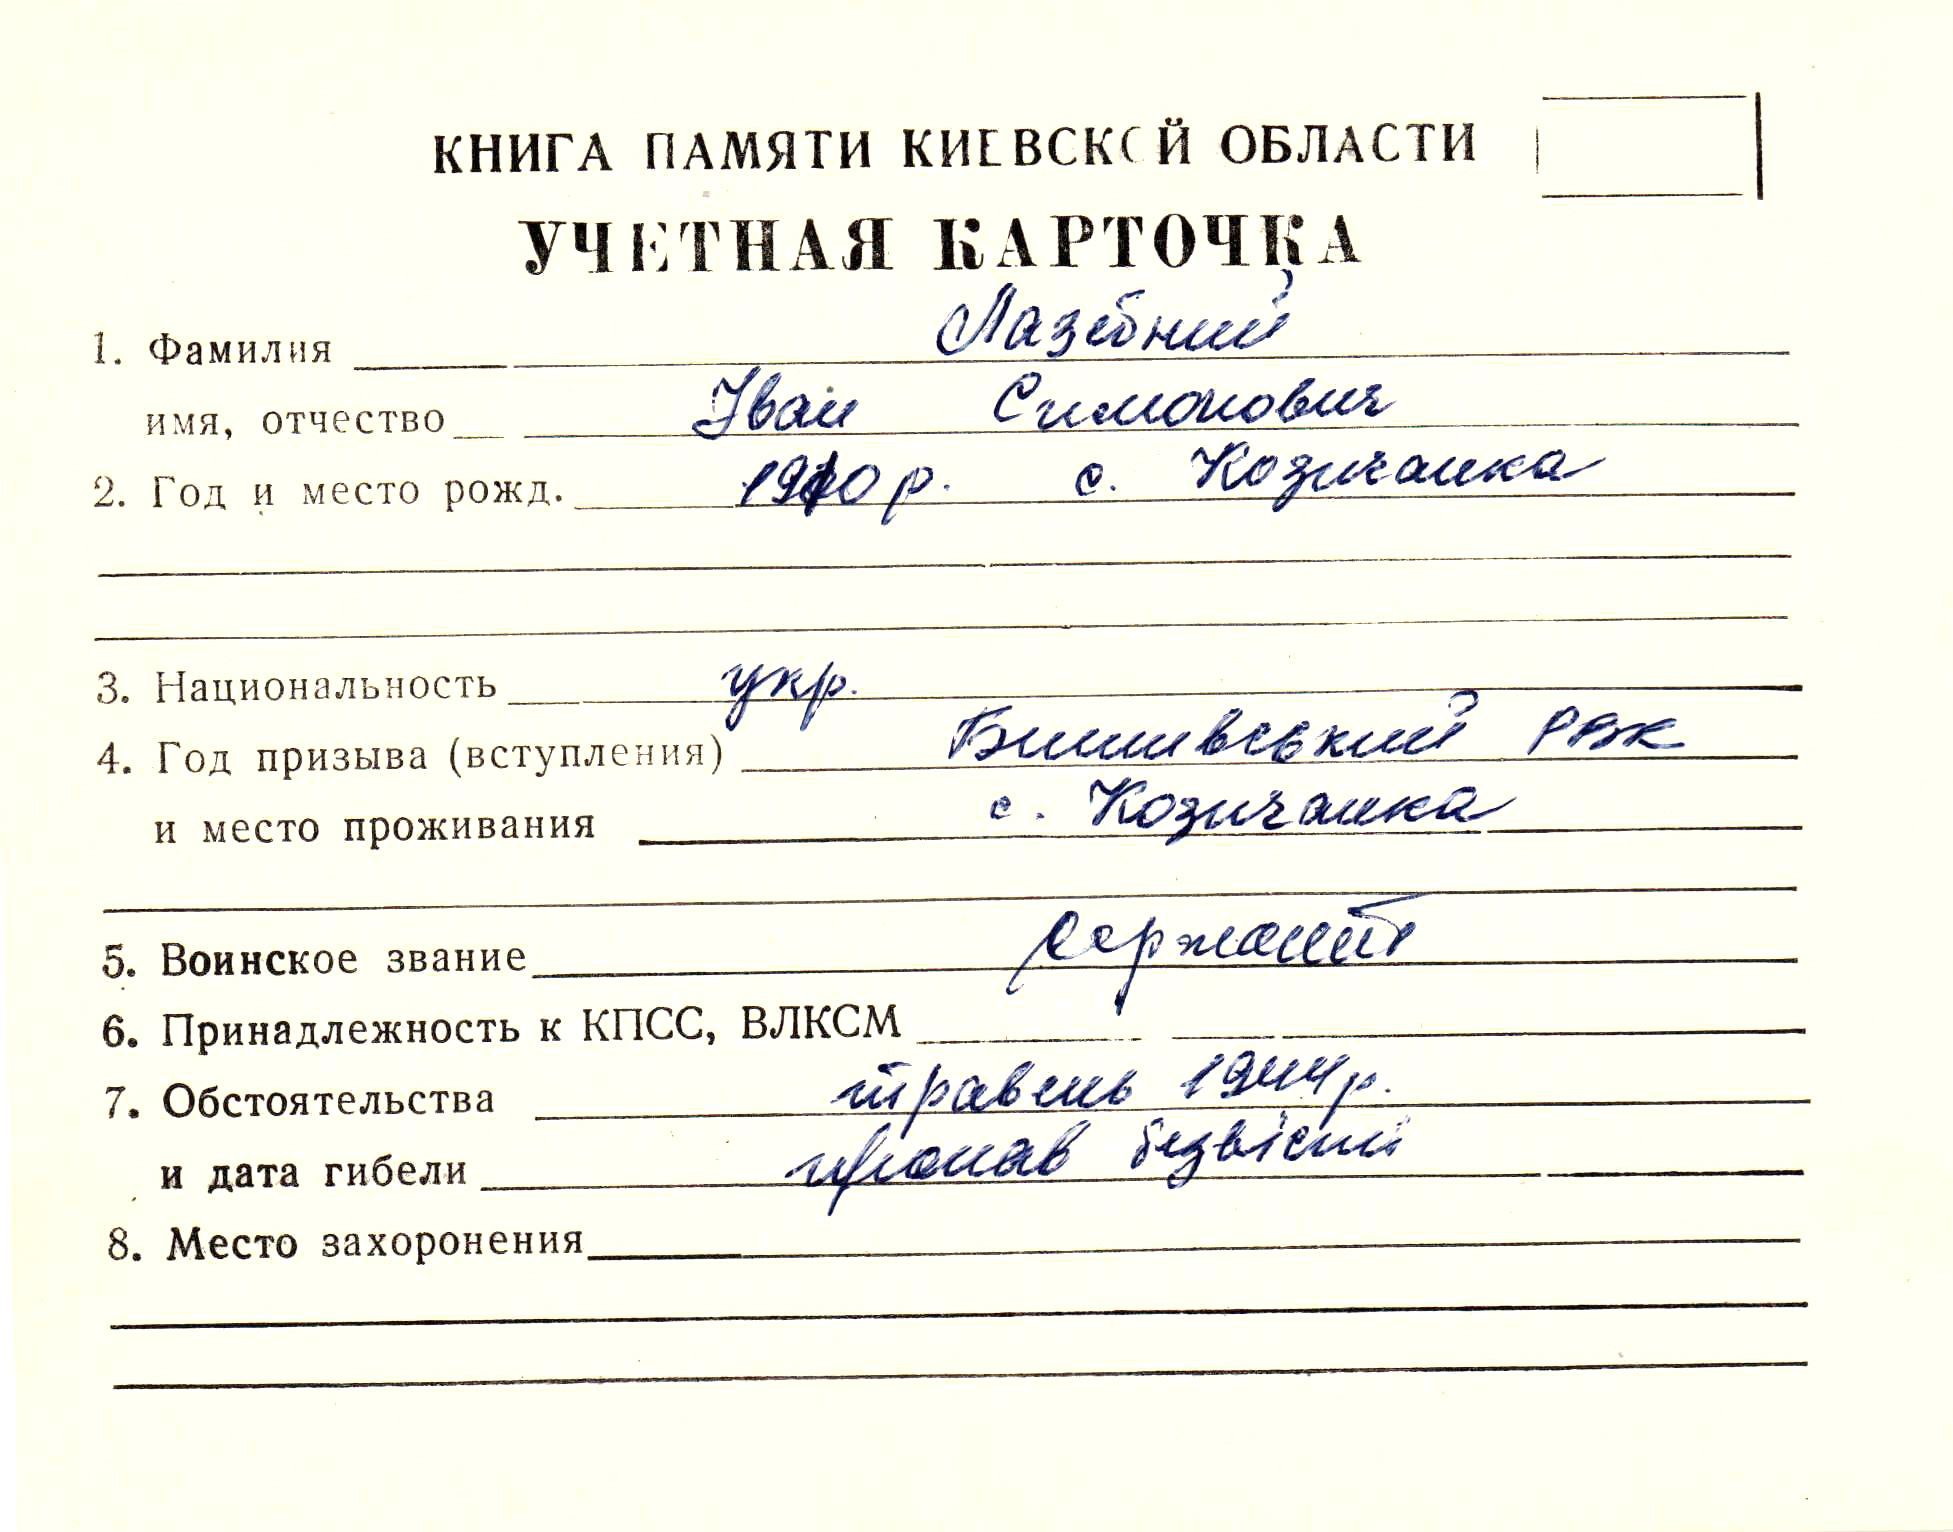 КНИГА ПАМЯТИ КИЕВСКОЙ ОБЛАСТИ
УЧЕТНАЯ КАРТОЧКА
1. Фамилия Лазебний
имя, отчество Іван Симонович
2. Год и место рожд. 1910 р. с. Козичанка
3. Национальность укр.
4. Год призыва (вступления) Бишивський РВК
и место проживания с. Козичанка
5. Воинское звание сержант
6. Принадлежность к КПСС, ВЛКСМ
7. Обстоятельства травень 1944 р.
и дата гибели пропав безвісті
8. Место захоронения